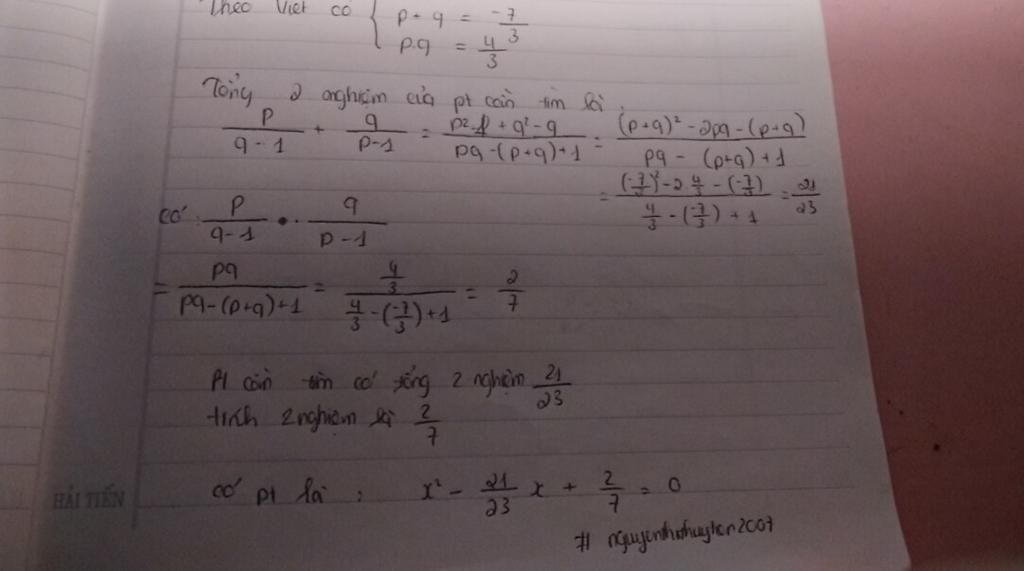 Theo Viet có { p + q = -7/3
p.q = 4/3
Tổng 2 nghiệm của pt cần tìm là.
p/(q-1) + q/(p-1) = (p²-p+q²-q)/(pq-(p+q)+1) = ((p+q)²-2pq-(p+q))/(pq-(p+q)+1)
= ((-7/3)²-2 4/3-(-7/3))/(4/3-(-7/3)+1) = 21/23
có: p/(q-1) . q/(p-1)
= pq/(pq-(p+q)+1) = (4/3)/(4/3-(-7/3)+1) = 2/7
Pt cần tìm có tổng 2 nghiệm 21/23
tích 2 nghiệm là 2/7
có pt là : x² - 21/23 x + 2/7 = 0
HẢI TIẾN